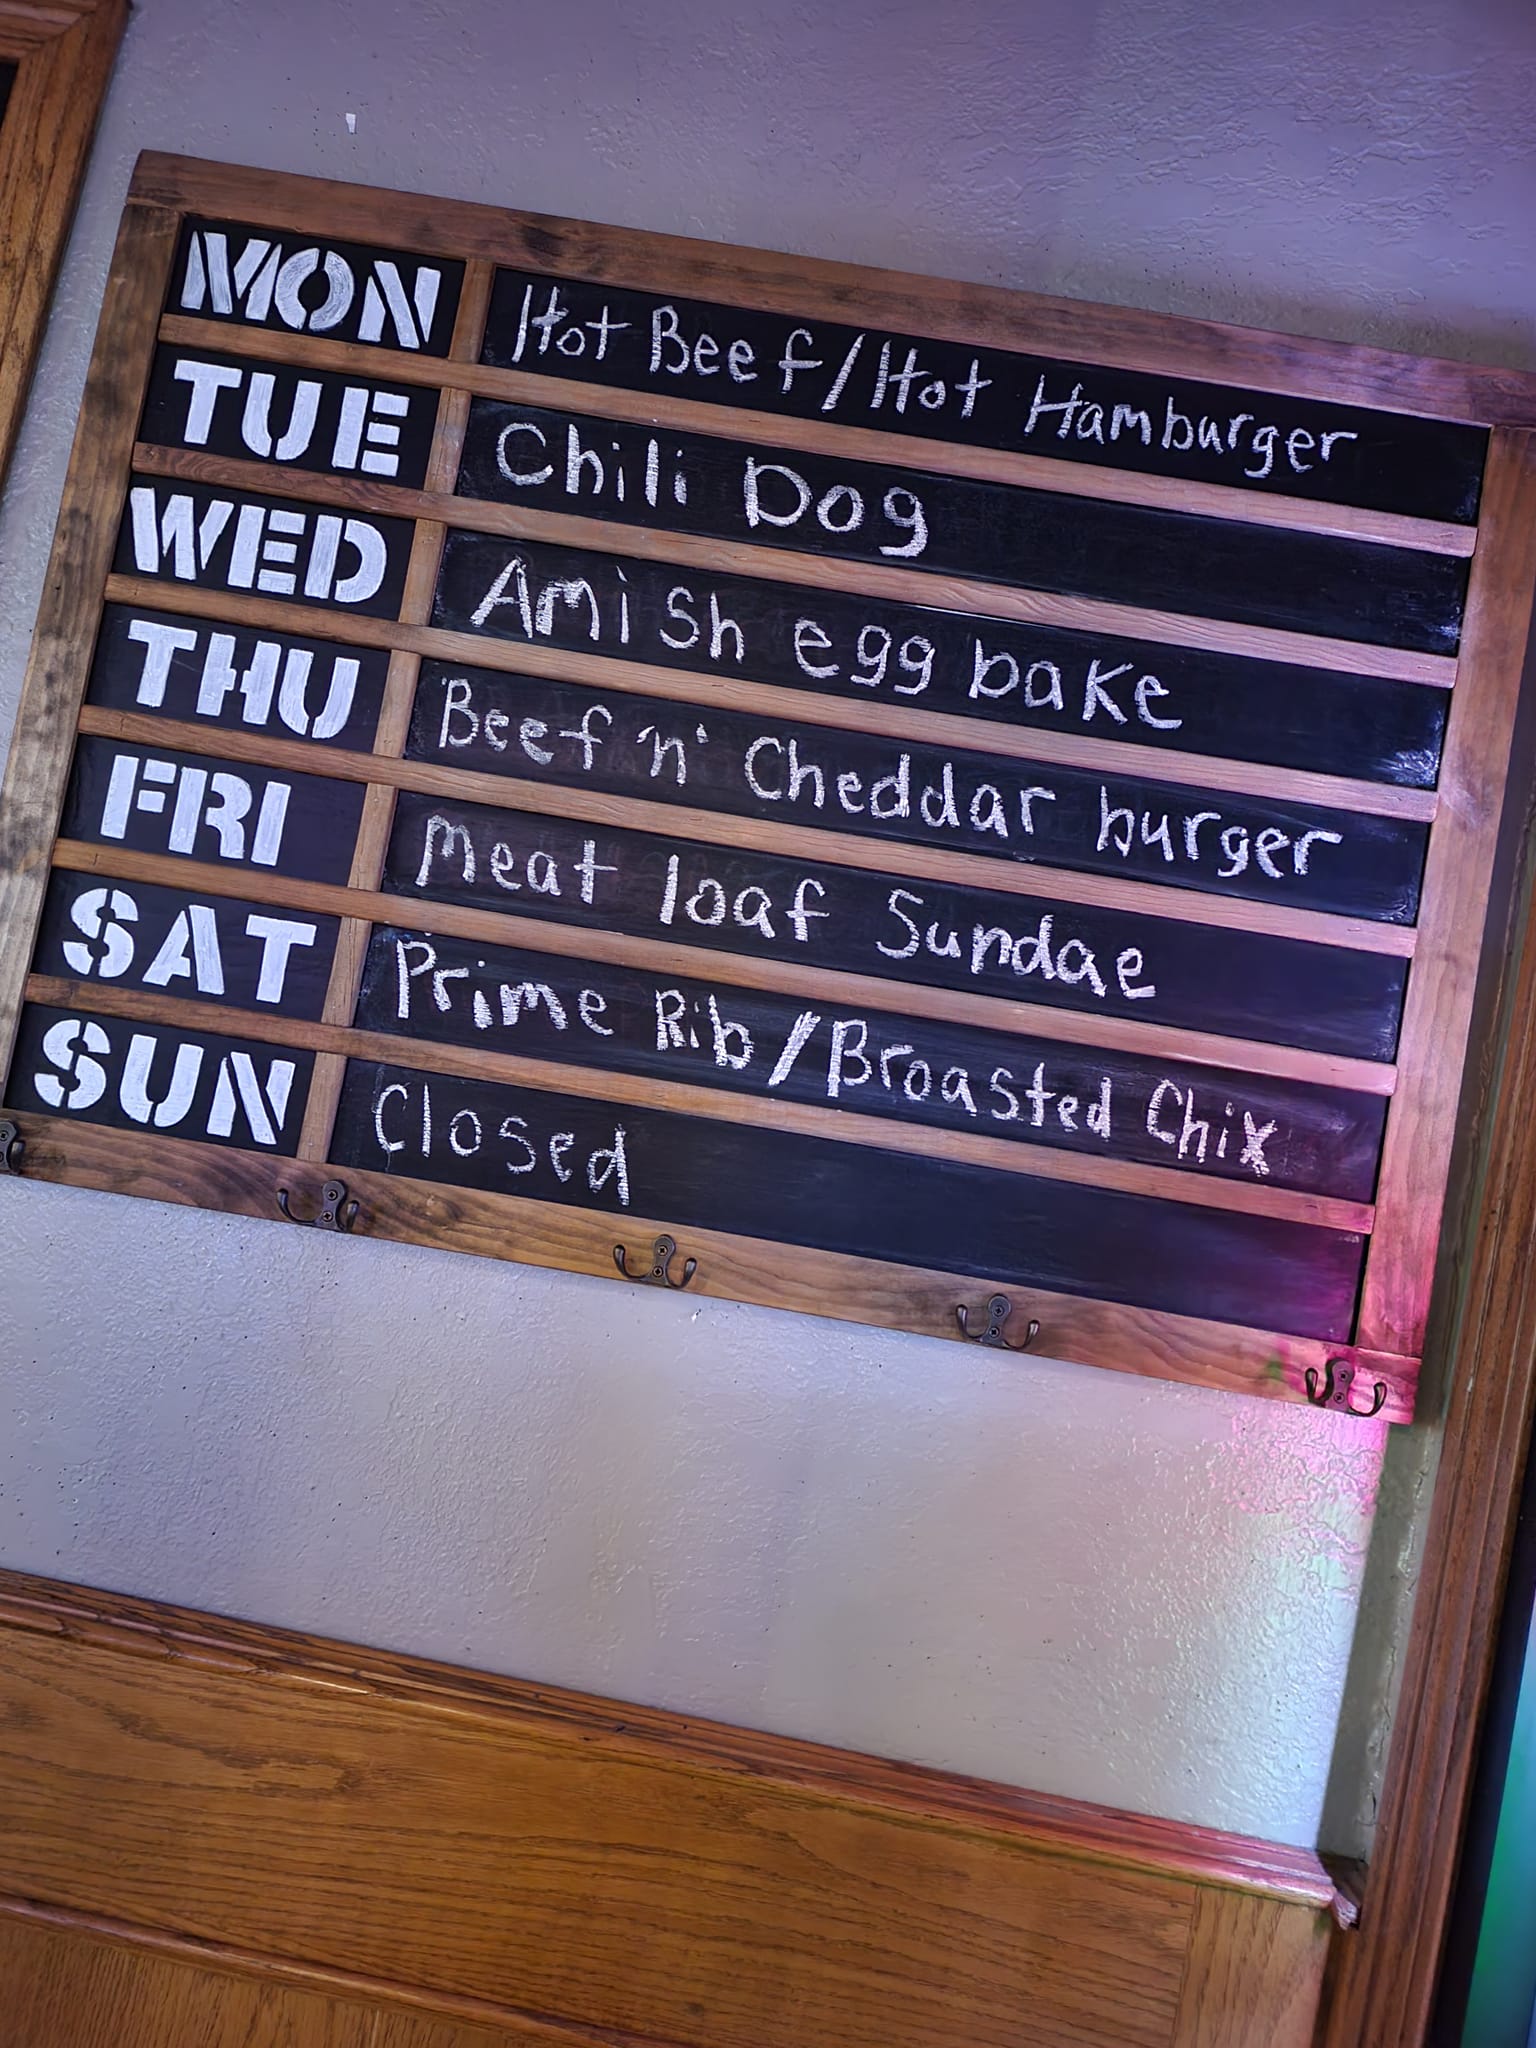 MON Hot Beef/Hot Hamburger
TUE Chili Dog
WED Amish egg bake
THU Beef 'n' Cheddar burger
FRI Meat loaf Sundae
SAT Prime Rib/Broasted Chix
SUN Closed